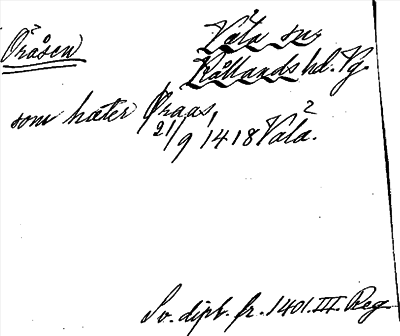 Öråsen
Våla sn,
Kållands hd. Vg.
som hæter Øraas,
21/9 1418 Vala.
Sv. dipl. fr. 1401. III. Reg.